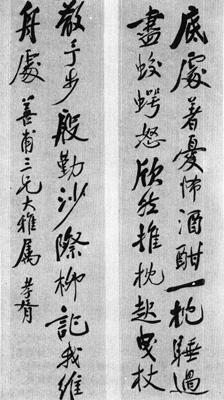 底處著憂怖酒酣一枕睡過
盡蛟鱷怒欣然推枕起曳杖
散予步殷勤沙際柳記我維
舟處 善甫三兄大雅屬 孝胥